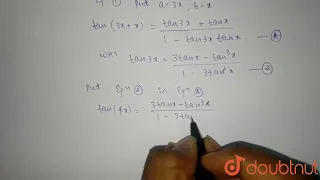 put a = 3x, b = x
tan(3x+x) = tan3x + tanx / 1 - tan3x tanx
tan3x = 3tanx - tan³x / 1 - 3tan²x — ②
Put Eqⁿ ② in Eqⁿ
tan(4x) = 3tanx - tan³x / 1 - 3ta
doubtnut